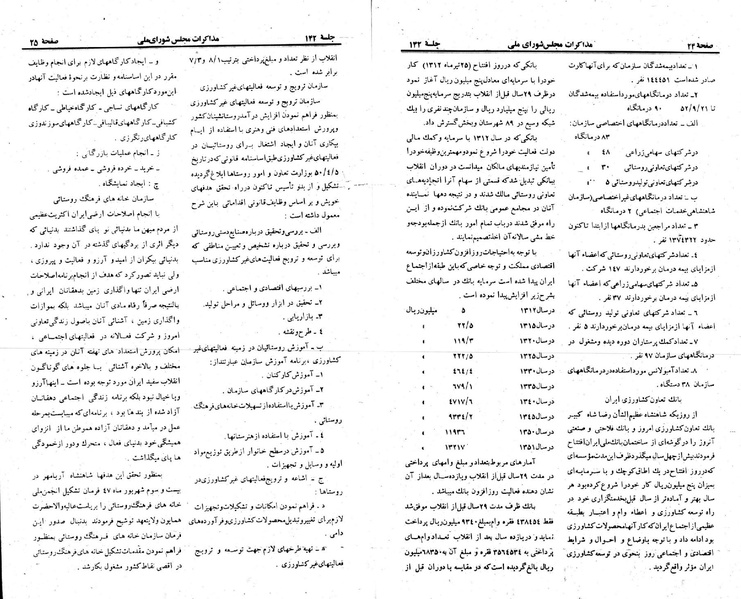 صفحهٔ ۲۴ مذاکرات مجلس شورای ملی جلسهٔ ۱۴۲
۱ - تعداد بیمه‌شدگان سازمان که برای آنها کارت
صادر شده است ۱۴۴۴۵۱ نفر .
۲ - تعداد درمانگاههای مورد استفاده بیمه‌شدگان
تا ۵۲/۹/۲۱ ۹۰ درمانگاه
الف - تعداد درمانگاههای اختصاصی سازمان :
۸۳ درمانگاه
در شرکتهای سهامی زراعی ۴۸ »
در شرکتهای تعاونی روستائی ۳۰ »
در شرکتهای تعاونی تولید روستائی ۵ »
ب - تعداد درمانگاههای غیر اختصاصی (سازمان
شاهنشاهی خدمات اجتماعی) ۲ درمانگاه
۳ - تعداد مراجعین به درمانگاهها از ابتدا تاکنون
حدود ۱۳۷۴۳۲۲ نفر .
۴ - تعداد شرکتهای تعاونی روستائی که اعضاء آنها
از مزایای بیمه درمان برخوردارند ۱۴۷ شرکت .
۵ - تعداد شرکتهای سهامی زراعی که اعضاء آنها
از مزایای بیمه درمان برخوردارند ۳۷ نفر .
۶ - تعداد شرکتهای تعاونی تولید روستائی که
اعضاء آنها از مزایای بیمه درمان برخوردارند ۵ نفر .
۷ - تعداد کمک پرستاران دوره دیده و مشغول در
درمانگاههای سازمان ۹۷ نفر .
۸ - تعداد آمبولانس مورد استفاده در درمانگاههای
سازمان ۳۸ دستگاه .
بانک تعاون کشاورزی ایران
از روزیکه شاهنشاه عظیم‌الشأن رضا شاه کبیر
بانک تعاون کشاورزی امروز و بانک فلاحتی و صنعتی
آنروز را در گوشه‌ای از ساختمان بانک ملی ایران افتتاح
فرمودند بیش از چهل سال میگذرد ظرف این مدت مؤسسه‌ای
که در روز افتتاح در یک اطاق کوچک و با سرمایه‌ای
بمیزان پنج میلیون ریال کار خود را شروع کرده بود هر
سال بهتر و آماده‌تر از سال قبل بخدمتگزاری خود در
راه توسعه کشاورزی و اعطاء وام و اعتبار بطبقه
عظیمی از اجتماع ایران که کار آنها محصولات کشاورزی
بود ادامه داد و با توجه باوضاع و احوال و شرایط
اقتصادی و اجتماعی روز بنحوی در توسعه کشاورزی
ایران مؤثر واقع گردید .
بانکی که در روز افتتاح (۲۵ تیرماه ۱۳۱۲) کار
خود را با سرمایه‌ای معادل پنج میلیون ریال آغاز نمود
در ظرف ۲۹ سال قبل از انقلاب بتدریج سرمایه پنج میلیون
ریالی را به پنج میلیارد ریال و سازمان چند نفری را بیک
شبکه وسیع در ۸۹ شهرستان و بخش گسترش داد .
بانکی که در سال ۱۳۱۲ با سرمایه و کمک مالی
دولت فعالیت خود را شروع نمود و مهمترین وظیفه خود را
تأمین نیازمندیهای مالکان میدانست در دوران انقلاب
ببانکی تبدیل شد که قسمتی از سهام آنرا اتحادیه‌های
تعاونی روستائی مالک شدند و در نتیجه دهها نماینده
آنان در مجامع عمومی بانک شرکت نموده و از این
راه موفق شدند در باب تمام امور بانک از جمله بودجه و
خط مشی سالانه آن اخذ تصمیم نمایند .
با توجه به احتیاجات روزافزون کشاورزان و توسعه
اقتصادی مملکت و توجه خاصی که باین طبقه از اجتماع
ایران پیدا شده است سرمایه بانک در سالهای مختلف
بشرح زیر افزایش پیدا نموده است .
در سال ۱۳۱۲ ۵ میلیون ریال
در سال ۱۳۱۵ ۲۲/۵ »
در سال ۱۳۲۰ ۱۱۹/۳ »
در سال ۱۳۲۵ ۲۲۲/۵ »
در سال ۱۳۳۰ ۴۶۴/۴ »
در سال ۱۳۳۵ ۶۷۹/۱ »
در سال ۱۳۴۰ ۴۷۱۷/۶ »
در سال ۱۳۴۵ ۹۳۳۴/۲ »
در سال ۱۳۵۰ ۱۱۹۳۶ »
در سال ۱۳۵۱ ۱۳۲۱۷ »
آمارهای مربوط به تعداد و مبلغ وامهای پرداختی
در مدت ۲۹ سال قبل از انقلاب و یازده سال بعد از آن
نشان دهنده فعالیت روزافزون بانک میباشد .
بانک ظرف مدت ۲۹ سال قبل از انقلاب موفق شد
فقط ۴۳۸۴۵۴ فقره وام بمبلغ ۹۳۴۰ میلیون ریال پرداخت
نماید و در یازده سال بعد از انقلاب تعداد وامهای
پرداختی به ۳۵۶۴۵۳۴ فقره و مبلغ آن به ۶۸۳۵۰ میلیون
ریال بالغ گردیده است که در مقایسه با دوران قبل از
جلسهٔ ۱۴۲ مذاکرات مجلس شورای ملی صفحهٔ ۲۵
انقلاب از نظر تعداد و مبلغ پرداختی بترتیب ۸/۱ و ۷/۳
برابر شده است .
سازمان ترویج و توسعه فعالیتهای غیر کشاورزی
سازمان ترویج و توسعه فعالیتهای غیر کشاورزی
بمنظور فراهم نمودن افزایش درآمد روستانشینان کشور
و پرورش استعدادهای فنی و هنری با استفاده از ایام
بیکاری آنان و ایجاد اشتغال برای روستائیان در
فعالیتهای غیر کشاورزی طبق اساسنامه قانونی که در تاریخ
۵۰/۴/۵ بوزارت تعاون و امور روستاها ابلاغ گردیده
تشکیل و از بدو تأسیس تاکنون در راه تحقق هدفهای
خویش و بر اساس وظایف قانونی اقداماتی باین شرح
معمول داشته است :
الف - بررسی و تحقیق درباره صنایع دستی روستائی
و بررسی و تحقیق درباره تشخیص و تعیین مناطقی که
برای توسعه و ترویج فعالیتهای غیر کشاورزی مناسب
میباشد .
۱ - بررسیهای اقتصادی و اجتماعی .
۲ - تحقیق در ابزار و وسائل و مراحل تولید .
۳ - بازاریابی .
۴ - طرح و نقشه .
ب - آموزش روستائیان در زمینه فعالیتهای غیر
کشاورزی ، برنامه آموزش سازمان عبارتند از :
۱ - آموزش کارکنان .
۲ - آموزش در کارگاههای سازمان .
۳ - آموزش با استفاده از تسهیلات خانه‌های فرهنگ
روستائی .
۴ - آموزش با استفاده از هنرستانها .
۵ - آموزش در سطح خانوار از طریق توزیع مواد
اولیه و وسایل و تجهیزات .
ج - اشاعه و ترویج فعالیتهای غیر کشاورزی در
روستاها :
د - فراهم نمودن امکانات و تشکیلات و تجهیزات
لازم برای تغییر و تبدیل محصولات کشاورزی و فرآورده‌های
دامی .
ه - تهیه طرحهای لازم جهت توسعه و ترویج
فعالیتهای غیر کشاورزی .
و - ایجاد کارگاههای لازم برای انجام وظایف
مقرر در این اساسنامه و نظارت بر نحوهٔ فعالیت آنها در
این مورد کارگاههای ذیل ایجاد شده است :
کارگاههای نساجی - کارگاه خیاطی - کارگاه
کشبافی - کارگاههای قالیبافی - کارگاههای سوزندوزی
کارگاههای رنگرزی .
ز - انجام عملیات بازرگانی :
- خرید - خرده فروشی - عمده فروشی .
ح - ایجاد نمایشگاه .
سازمان خانه های فرهنگ روستائی
با انجام اصلاحات ارضی ایران اکثریت عظیمی
از مردم میهن ما بدنیائی نو پای گذاشتند بدنیائی که
دیگر اثری از بردگیهای گذشته در آن وجود ندارد .
بدنیائی بیکران از امید و آرزو و فعالیت و پیروزی ،
ولی نباید تصور کرد که هدف از انجام برنامه اصلاحات
ارضی ایران تنها واگذاری زمین بدهقانان ایرانی و
بالنتیجه صرفاً رفاه مادی آنان میباشد بلکه بموازات
واگذاری زمین ، آشنائی آنان با اصول زندگی تعاونی
امروز و شرکت فعالانه در فعالیتهای اجتماعی ،
امکان پرورش استعداد های نهفته آنان در زمینه های
مختلف و بالاخره آشنائی با جلوه های گوناگون
انقلاب سفید ایران مورد توجه بوده است - اینها آرزو
و یا خیال نبود بلکه برنامه زندگی اجتماعی دهقانان
آزاد شده از بندها بود ، برنامه‌ای که میبایست بمرحله
عمل در می‌آمد و دهقانان آزاده هموطن ما از انزوای
همیشگی خود بدنیای فعال ، متحرک و دور از خمودگی
ها پای میگذاشت .
بمنظور تحقق این هدفها شاهنشاه آریامهر در
بیست و سوم شهریور ماه ۴۷ فرمان تشکیل انجمن ملی
خانه های فرهنگ روستائی را بریاست عالیه والاحضرت
همایون ولایتعهد توشیح فرمودند بدنبال صدور این
فرمان سازمان خانه های فرهنگ روستائی بمنظور
فراهم نمودن مقدمات تشکیل خانه های فرهنگ روستائی
در اقصی نقاط کشور مشغول بکار شد .